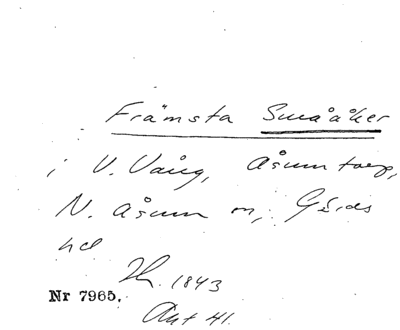 Främsta Smååker
i V. Vång, Åsumtorp,
N. Åsum sn, Gärds
hd
Lh. 1843
Nr 7965.
Akt 41.